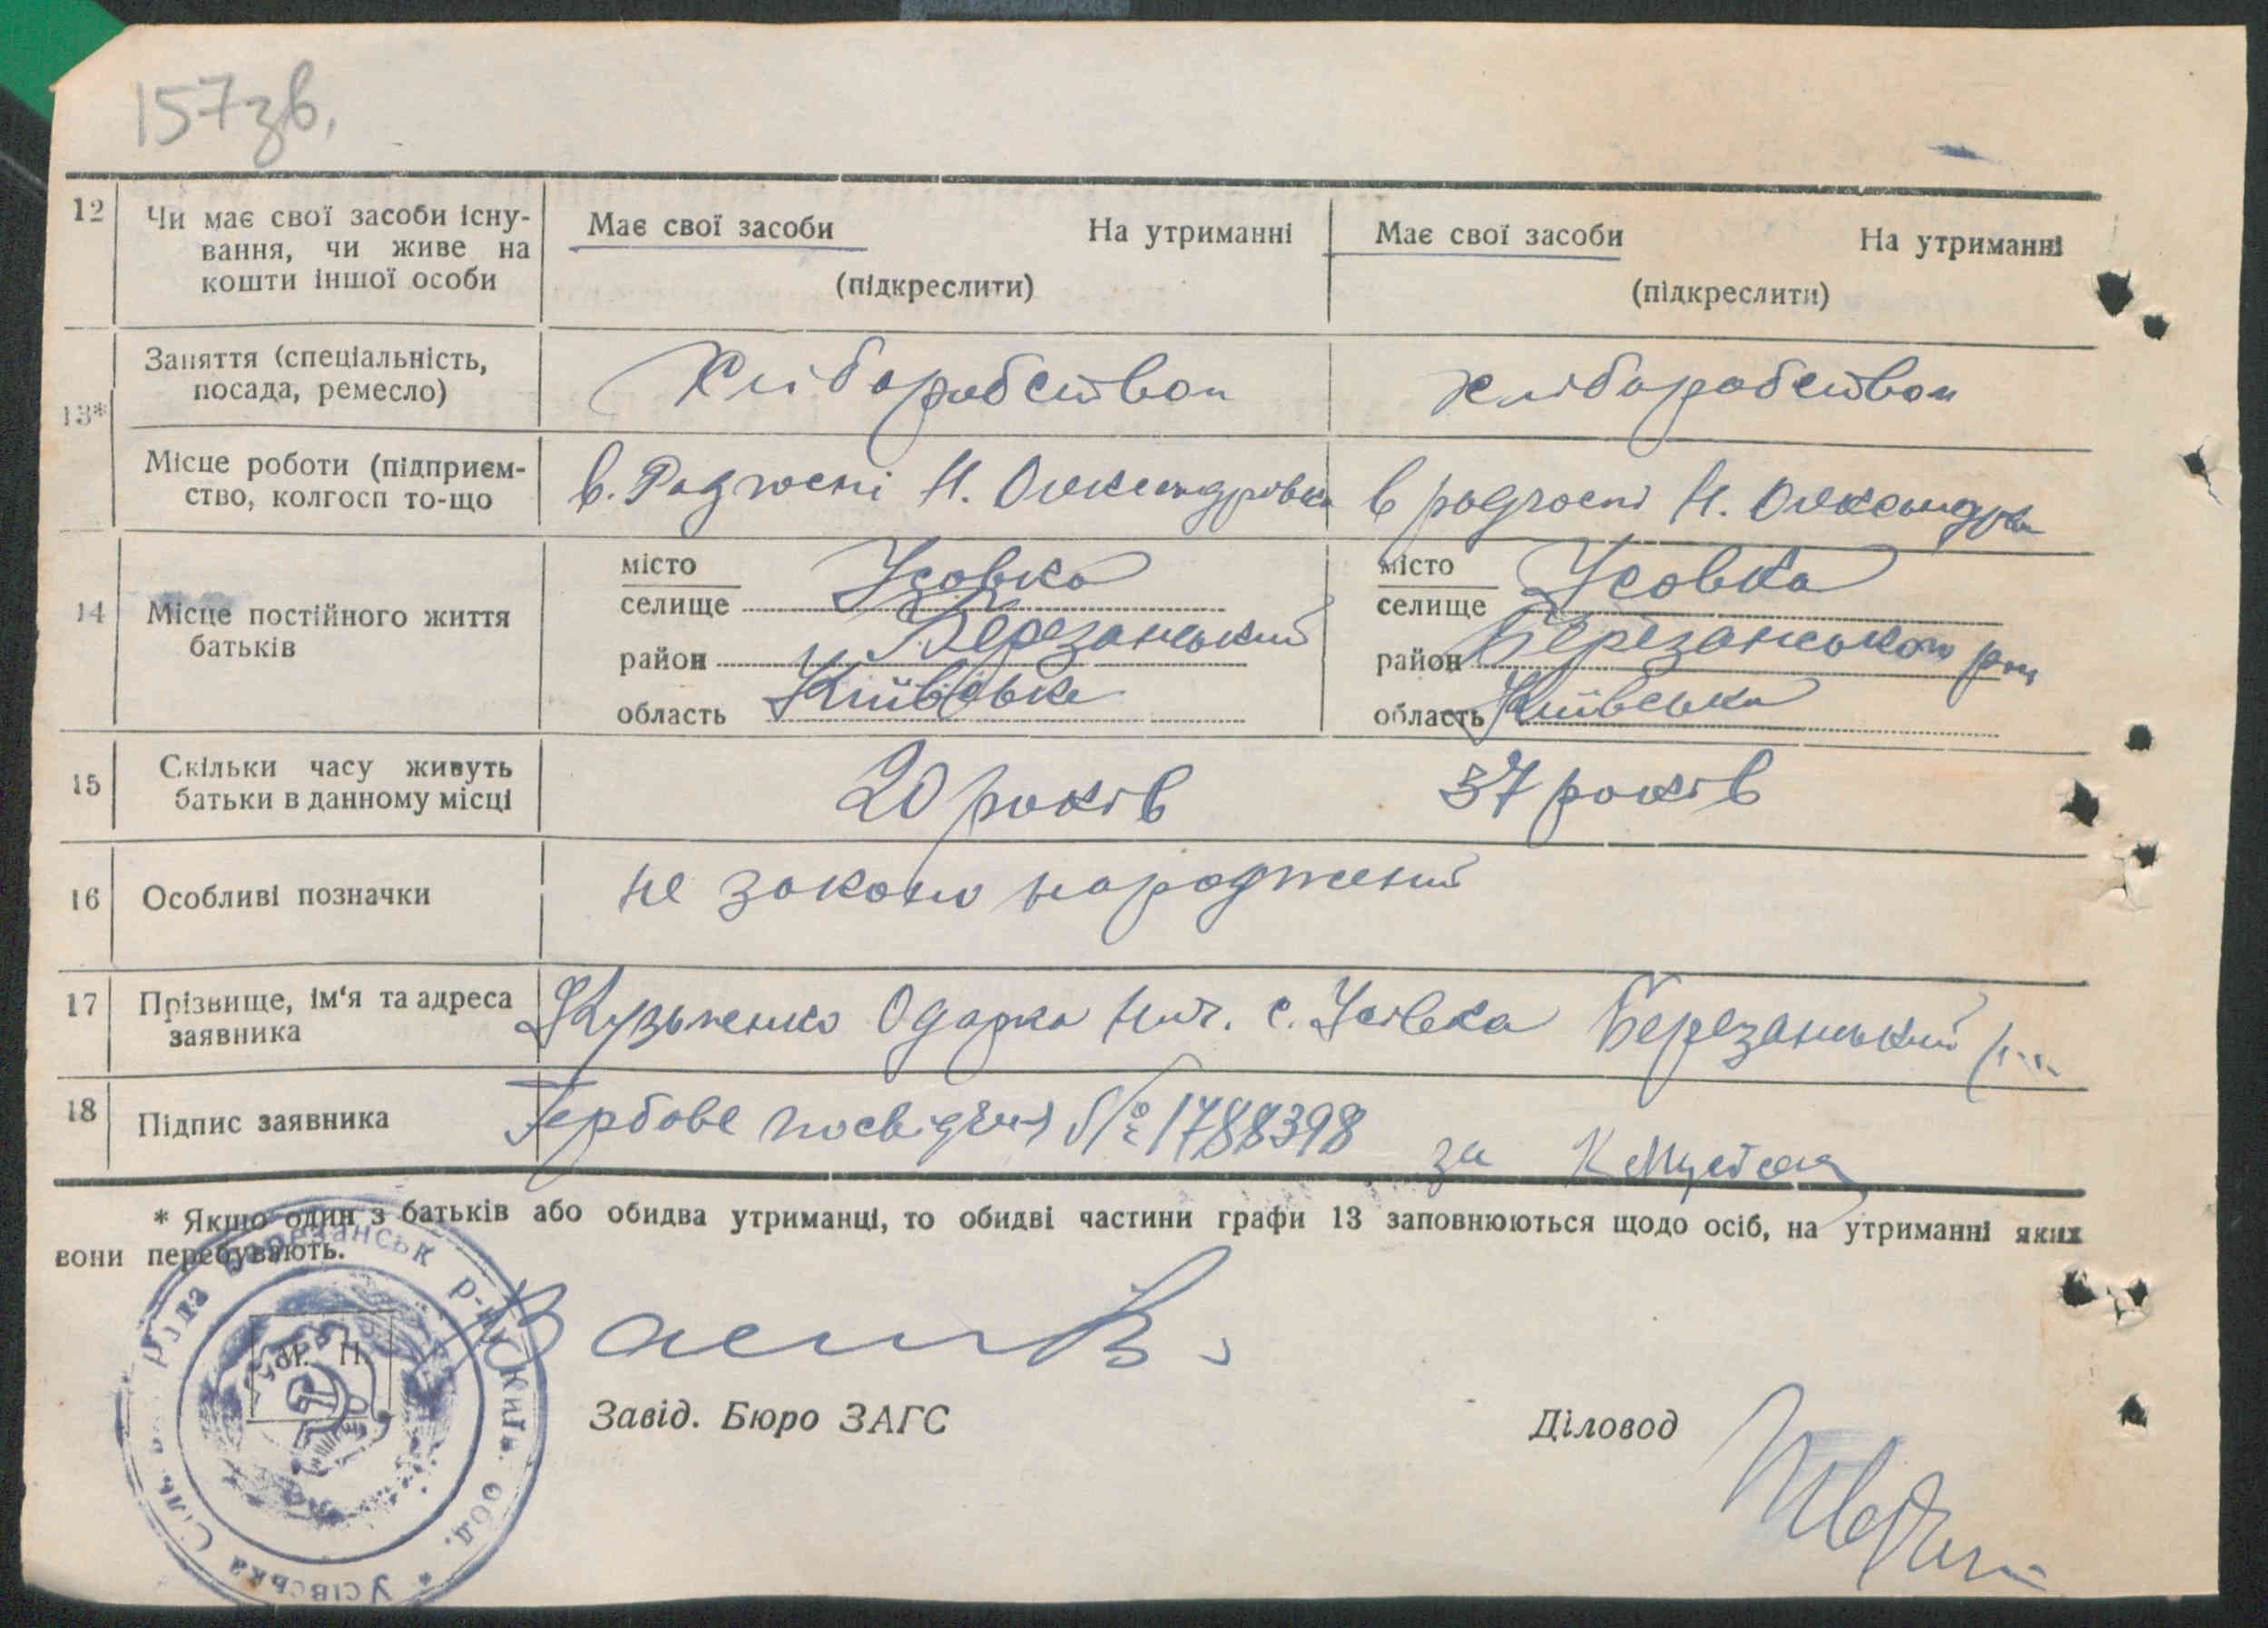 157зв.
12 Чи має свої засоби існу-
вання, чи живе на
кошти іншої особи
Має свої засоби На утриманні
(підкреслити)
Має свої засоби На утриманні
(підкреслити)
13*
Заняття (спеціальність,
посада, ремесло)
Хліборобством
хліборобством
Місце роботи (підприєм-
ство, колгосп то-що
в. Радгоспі Н. Олександрівка
в радгоспі Н. Олександрів
14 Місце постійного життя
батьків
місто
селище Усовка
район Березанський
область Київська
місто
селище Усовка
район Березанського рн
область Київська
15 Скільки часу живуть
батьки в данному місці
20 років
37 років
16 Особливі позначки
не законо народжений
17 Прізвище, ім'я та адреса
заявника
Кузьменко Одарка с. Усівка Березанський
18 Підпис заявника
Гербове посвідчня № 1788398 за
* Якщо один з батьків або обидва утриманці, то обидві частини графи 13 заповнюються щодо осіб, на утриманні яких
вони перебувають.
М. П.
Усівська Сіль. Рада Березанськ р-ну Київ. обл. *
УСРР
Завід. Бюро ЗАГС
Діловод